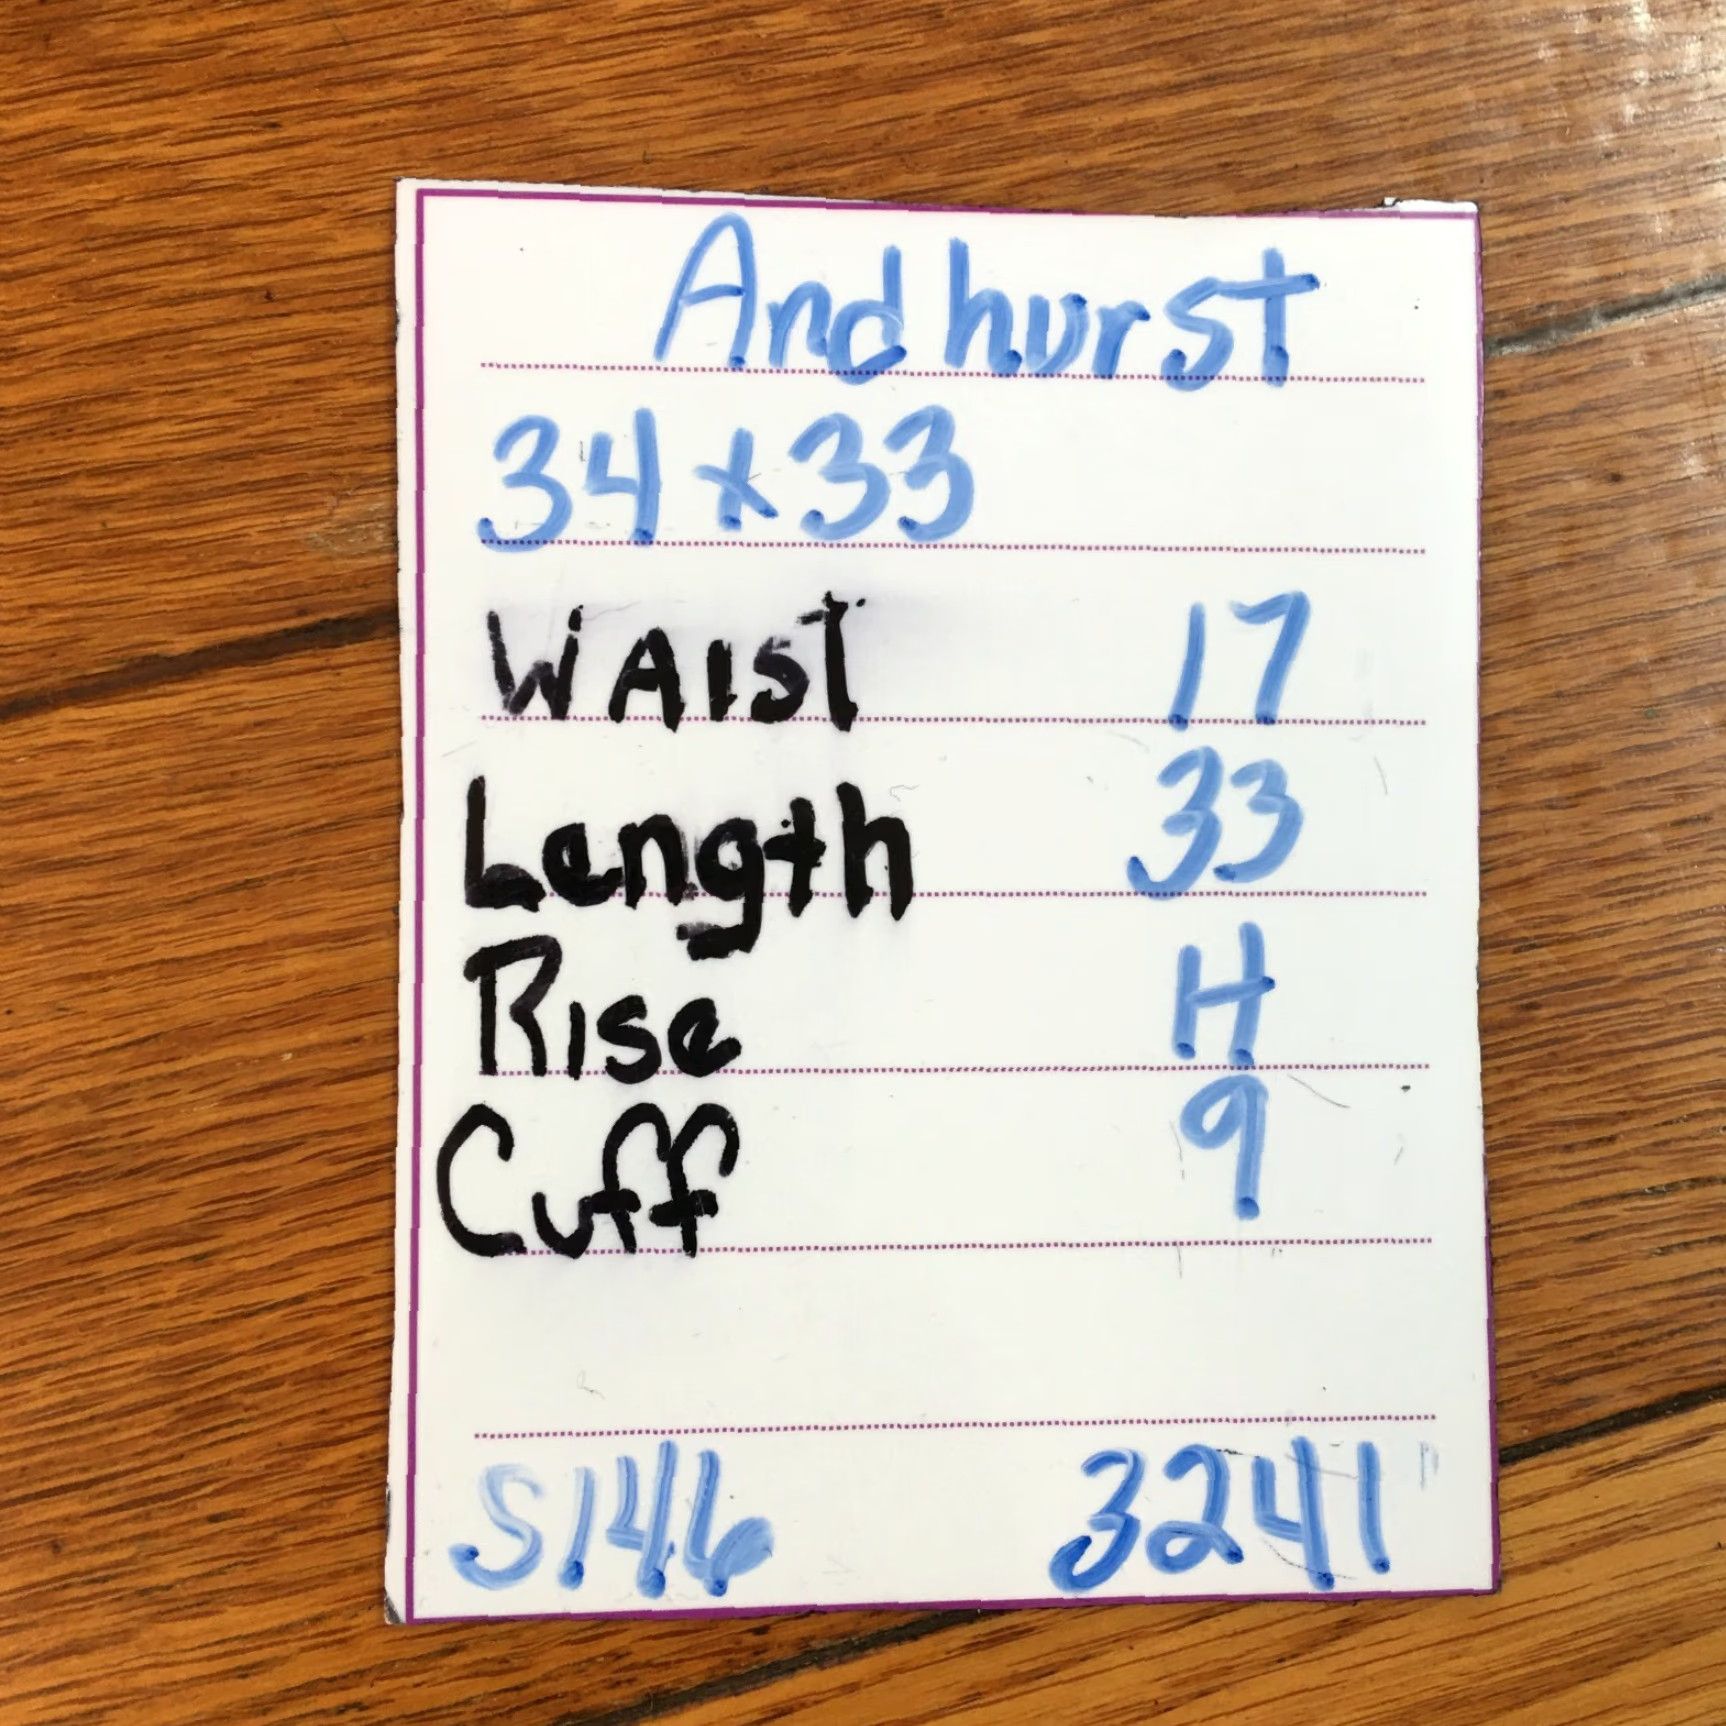 Andhurst
34x33
WAIST 17
Length 33
Rise H
Cuff 9
S146 3241